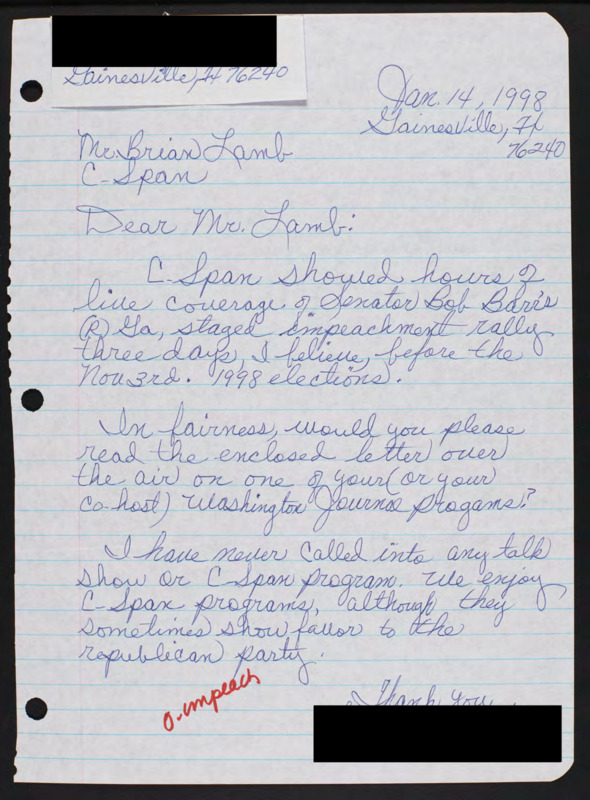 Gainesville, Tx 76240
Jan. 14, 1998
Gainesville, Tx
76240
Mr. Brian Lamb
C-Span
Dear Mr. Lamb:
C-Span showed hours of
live coverage of Senator Bob Barr's
(R) Ga, staged impeachment rally
three days, I believe, before the
Nov 3rd. 1998 elections.
In fairness, would you please
read the enclosed letter over
the air on one of your (or your
co-host) Washington Journal progams?
I have never called into any talk
show or C-Span program. We enjoy
C-Span programs, although they
sometimes show favor to the
republican party.
Thank you
O-impeach